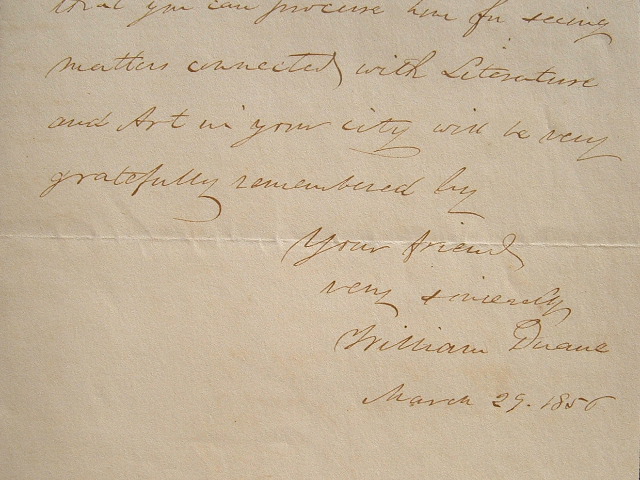 that you can procure him for seeing
matters connected with Literature
and Art in your city will be very
gratefully remembered by
Your friend
very sincerely
William Duane
March 29. 1856